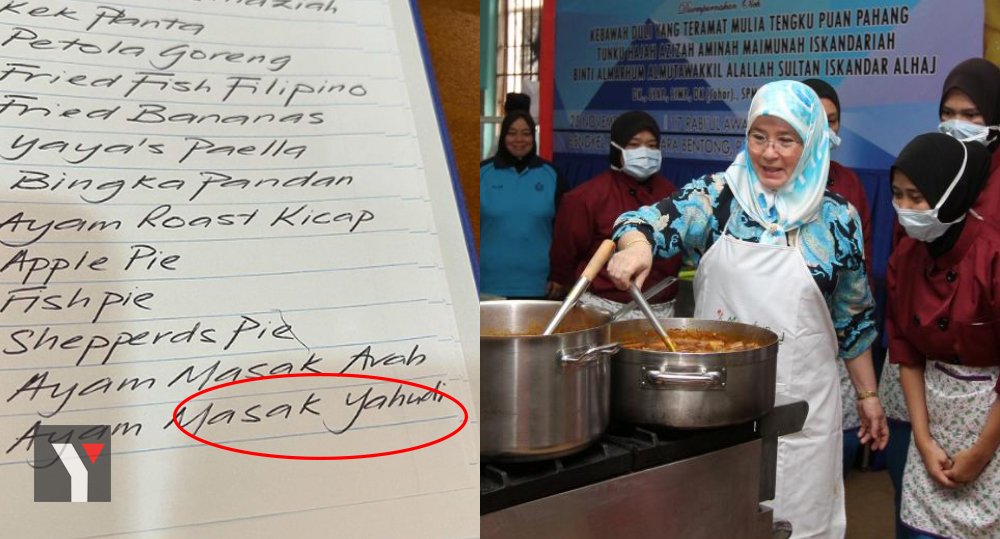 Kek Planta
Petola Goreng
Fried Fish Filipino
Fried Bananas
Yaya's Paella
Bingka Pandan
Ayam Roast Kicap
Apple Pie
Fish pie
Shepperds Pie
Ayam Masak Arab
Ayam Masak Yahudi
Y
Disempurnakan Oleh
KEBAWAH DULI YANG TERAMAT MULIA TENGKU PUAN PAHANG
TUNKU HAJAH AZIZAH AMINAH MAIMUNAH ISKANDARIAH
BINTI ALMARHUM ALMUTAWAKKIL ALALLAH SULTAN ISKANDAR ALHAJ